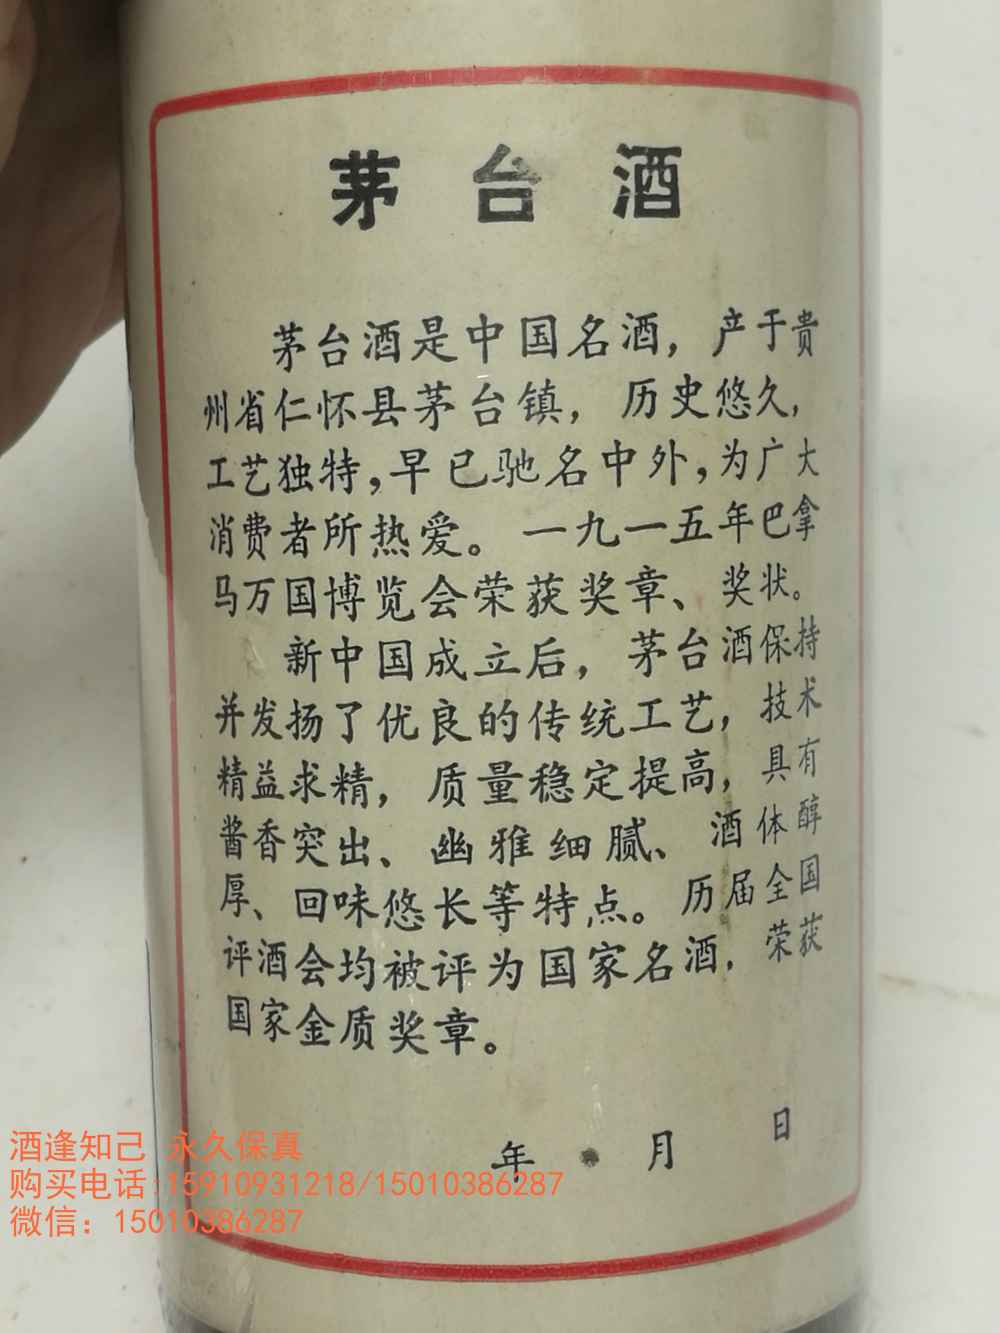 茅台酒
茅台酒是中国名酒，产于贵
州省仁怀县茅台镇，历史悠久，
工艺独特，早已驰名中外，为广大
消费者所热爱。一九一五年巴拿
马万国博览会荣获奖章、奖状。
新中国成立后，茅台酒保持
并发扬了优良的传统工艺，技术
精益求精，质量稳定提高，具有
酱香突出、幽雅细腻、酒体醇
厚、回味悠长等特点。历届全国
评酒会均被评为国家名酒，荣获
国家金质奖章。
年 月 日
酒逢知己 永久保真
购买电话:15910931218/15010386287
微信：15010386287